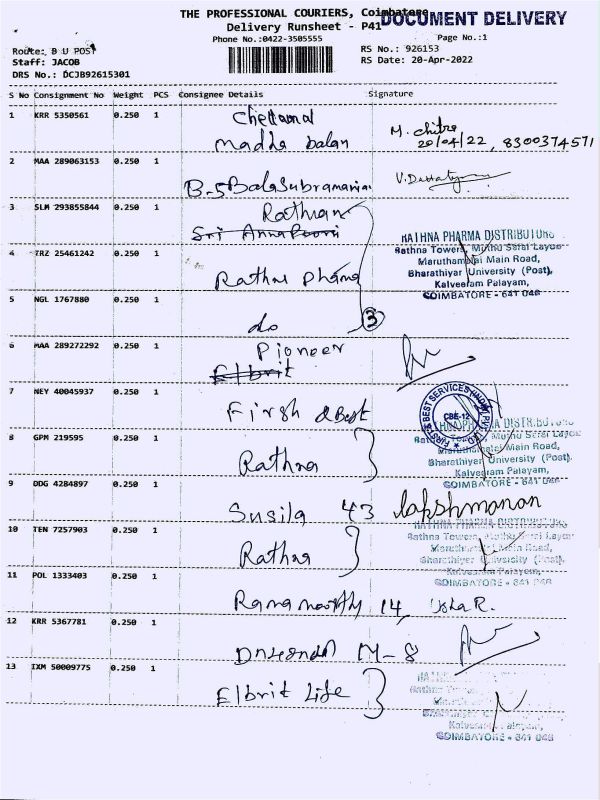 THE PROFESSIONAL COURIERS, Coimbatore
DOCUMENT DELIVERY
Delivery Runsheet - P41
Phone No.:0422-3505555
Page No.:1
Route: B U POST
RS No.: 926153
Staff: JACOB
RS Date: 20-Apr-2022
DRS No.: DCJB92615301
S No Consignment No Weight PCS Consignee Details Signature
1 KRR 5350561 0.250 1
madha balan
M. Chitra
20/04/22, 8300374571
2 MAA 289063153 0.250 1
B.S Balasubramanian
3 SLM 293855844 0.250 1
Sri Annapoorni
RATHNA PHARMA DISTRIBUTORS
Rathna Towers, Muthu Sersi Layout
Maruthamalai Main Road,
Bharathiyar University (Post),
Kalveeram Palayam,
COIMBATORE - 641 046
4 TRZ 25461242 0.250 1
Rathna Pharma
5 NGL 1767880 0.250 1
do
3
6 MAA 289272292 0.250 1
Pioneer
Elbrit
7 NEY 40045937 0.250 1
First & Best
FIRST & BEST SERVICES (INDIA) PVT LTD
CBE-12
8 GPM 219595 0.250 1
Rathna
Maruthamalai Main Road,
Bharathiyar University (Post),
Kalveeram Palayam,
COIMBATORE - 641 046
9 DDG 4284897 0.250 1
Susila 43
Lakshmanan
10 TEN 7257903 0.250 1
Rathna
RATHNA PHARMA DISTRIBUTORS
Rathna Towers, Muthu Sersi Layout
Maruthamalai Main Road,
Bharathiyar University (Post),
Kalveeram Palayam,
COIMBATORE - 641 046
11 POL 1333403 0.250 1
Ramamoorthy 14, Usha R.
12 KRR 5367781 0.250 1
M-8
13 IXM 50009775 0.250 1
Elbrit Life
COIMBATORE - 641 046